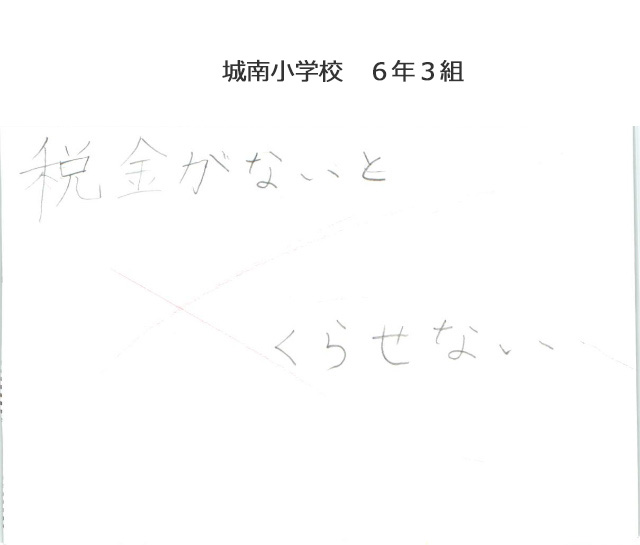 城南小学校　６年３組
税金がないと
くらせない